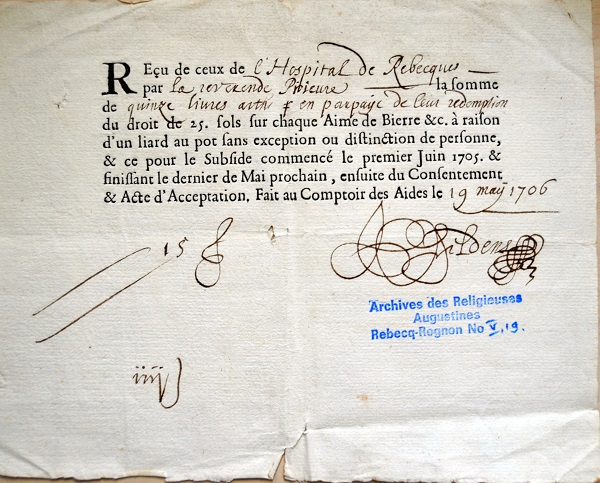 REçu de ceux de l'Hospital de Rebecques
par la reverende Prieure la somme
de quinze livres arths en parpaye de leur redemption
du droit de 25. sols sur chaque Aime de Bierre &c. à raison
d'un liard au pot sans exception ou distinction de personne,
& ce pour le Subside commencé le premier Juin 1705. &
finissant le dernier de Mai prochain, ensuite du Consentement
& Acte d'Acceptation. Fait au Comptoir des Aides le 19 maÿ 1706
15
Archives des Religieuses
Augustines
Rebecq-Rognon No V, 19.